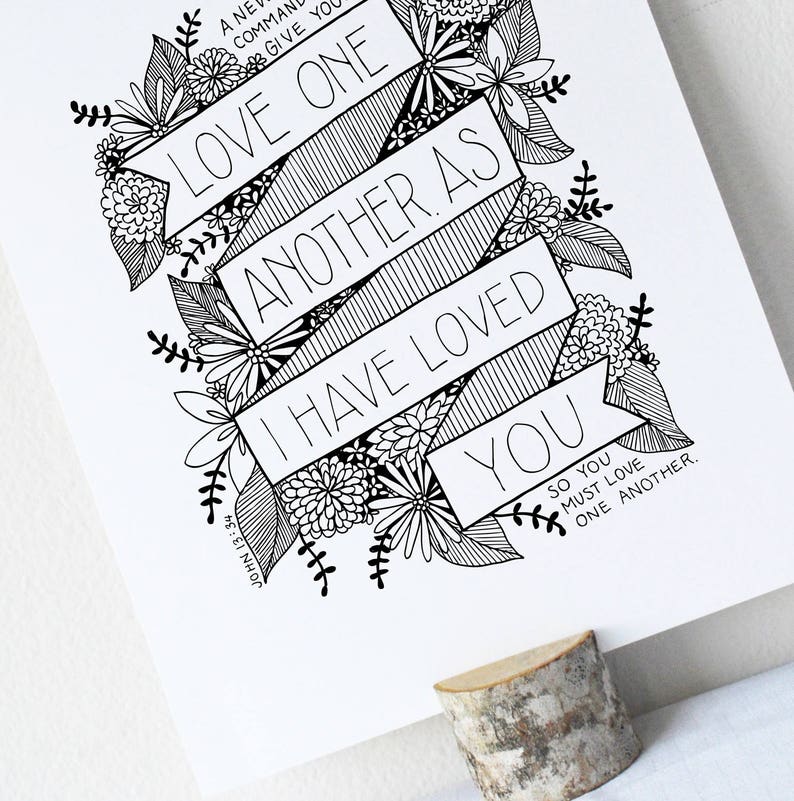 A NEW
COMMAND
GIVE YOU
LOVE ONE
ANOTHER. AS
I HAVE LOVED
YOU
SO YOU
MUST LOVE
ONE ANOTHER.
JOHN 13:34